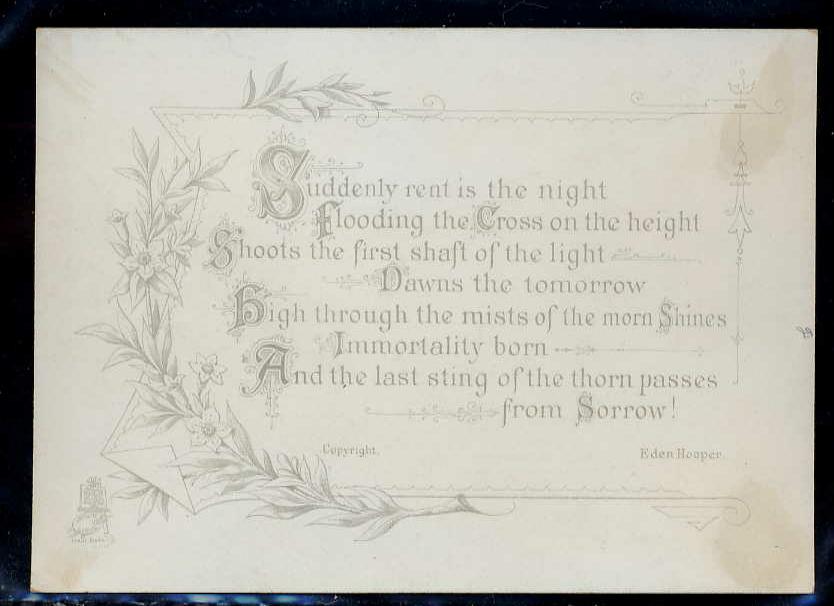 Suddenly rent is the night
Flooding the Cross on the height
Shoots the first shaft of the light
Dawns the tomorrow
High through the mists of the morn Shines
Immortality born
And the last sting of the thorn passes
from Sorrow!
Copyright. Eden Hooper.